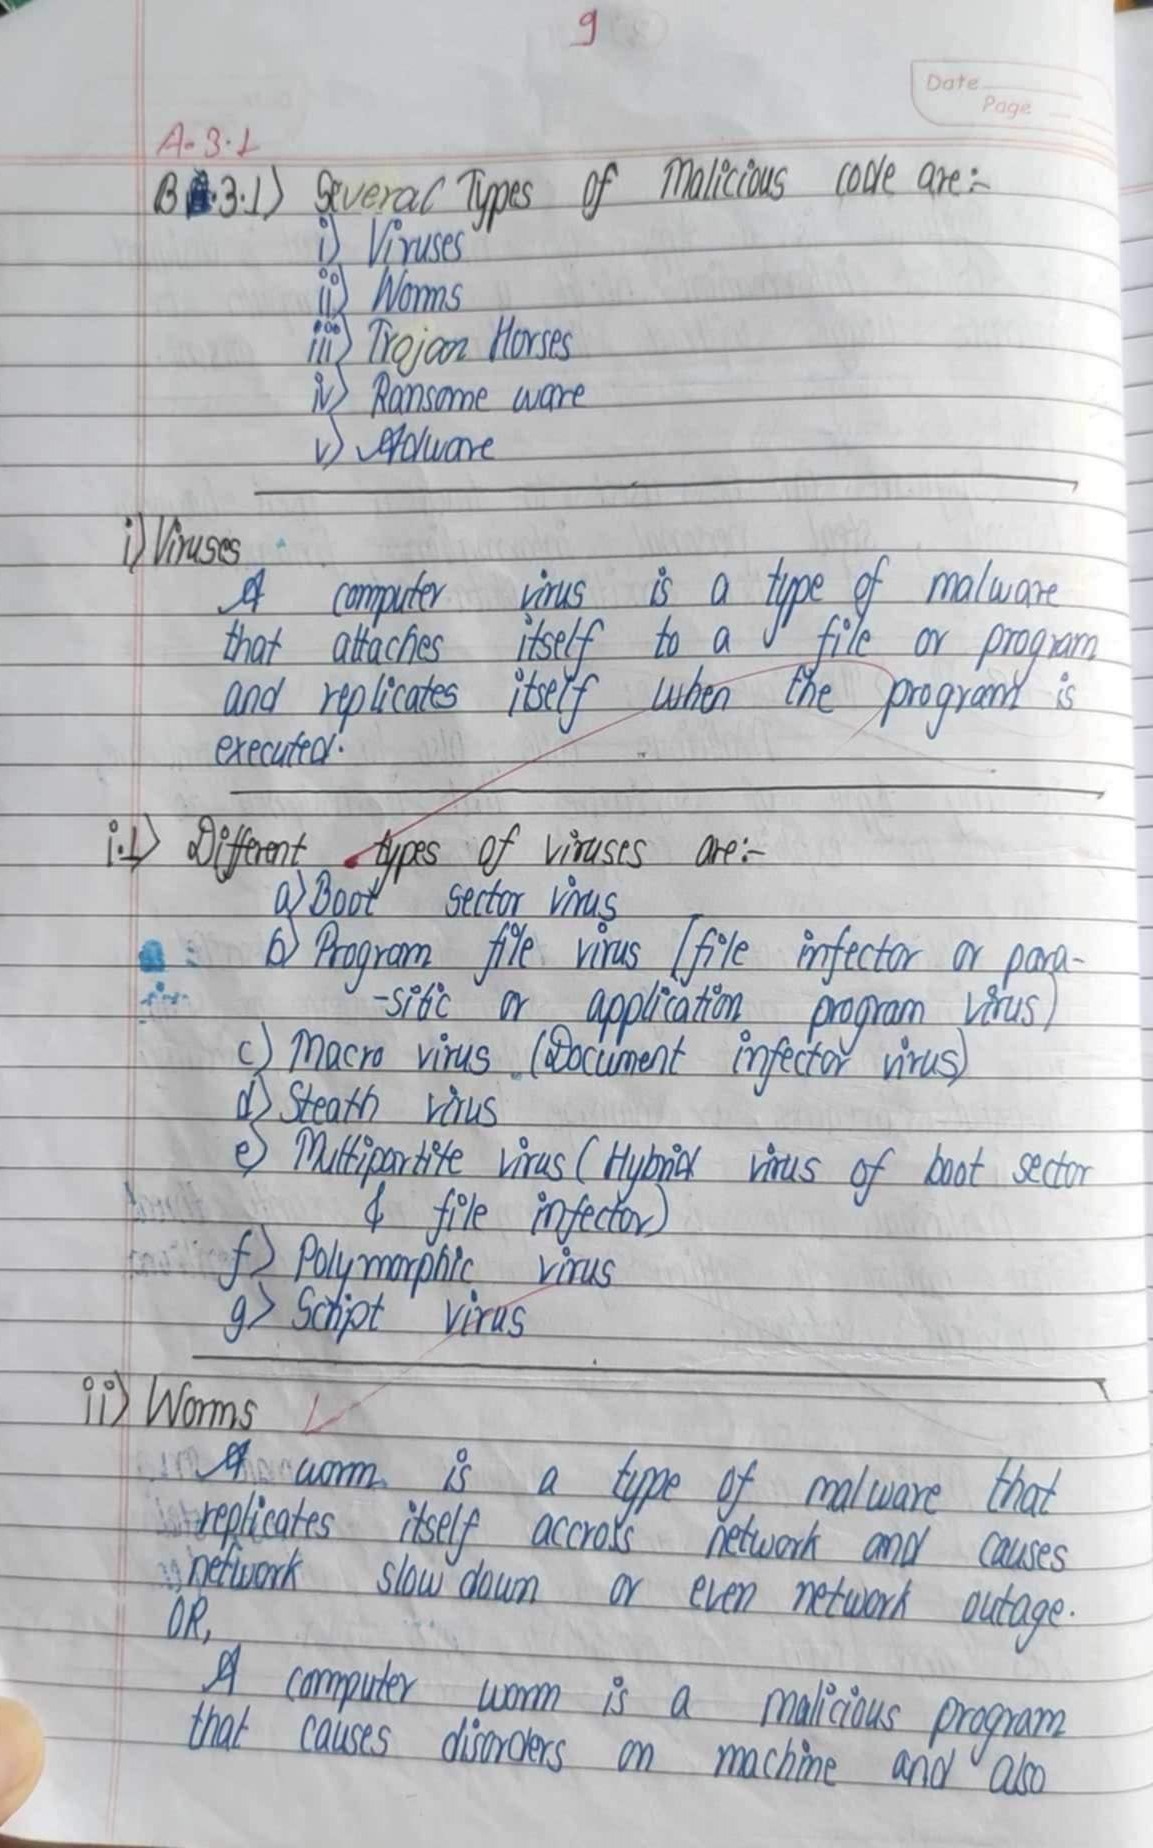 9
Date
Page
A-3.1
B .3.1) Several Types of Malicious code are:-
i) Viruses
ii) Worms
iii) Trojan Horses
iv) Ransome ware
v) Adware
i) Viruses
A computer virus is a type of malware
that attaches itself to a file or program
and replicates itself when the program is
executed.
i.1) Different types of viruses are:-
a) Boot sector virus
b) Program file virus [file infector or para-
-sitic or application program virus)
c) Macro virus (Document infector virus)
d) Steath virus
e) Multipartite virus (Hybrid virus of boot sector
& file infector)
f) Polymorphic virus
g) Script virus
ii) Worms
A worm is a type of malware that
replicates itself accross network and causes
network slow down or even network outage.
OR,
A computer worm is a malicious program
that causes disorders on machine and also